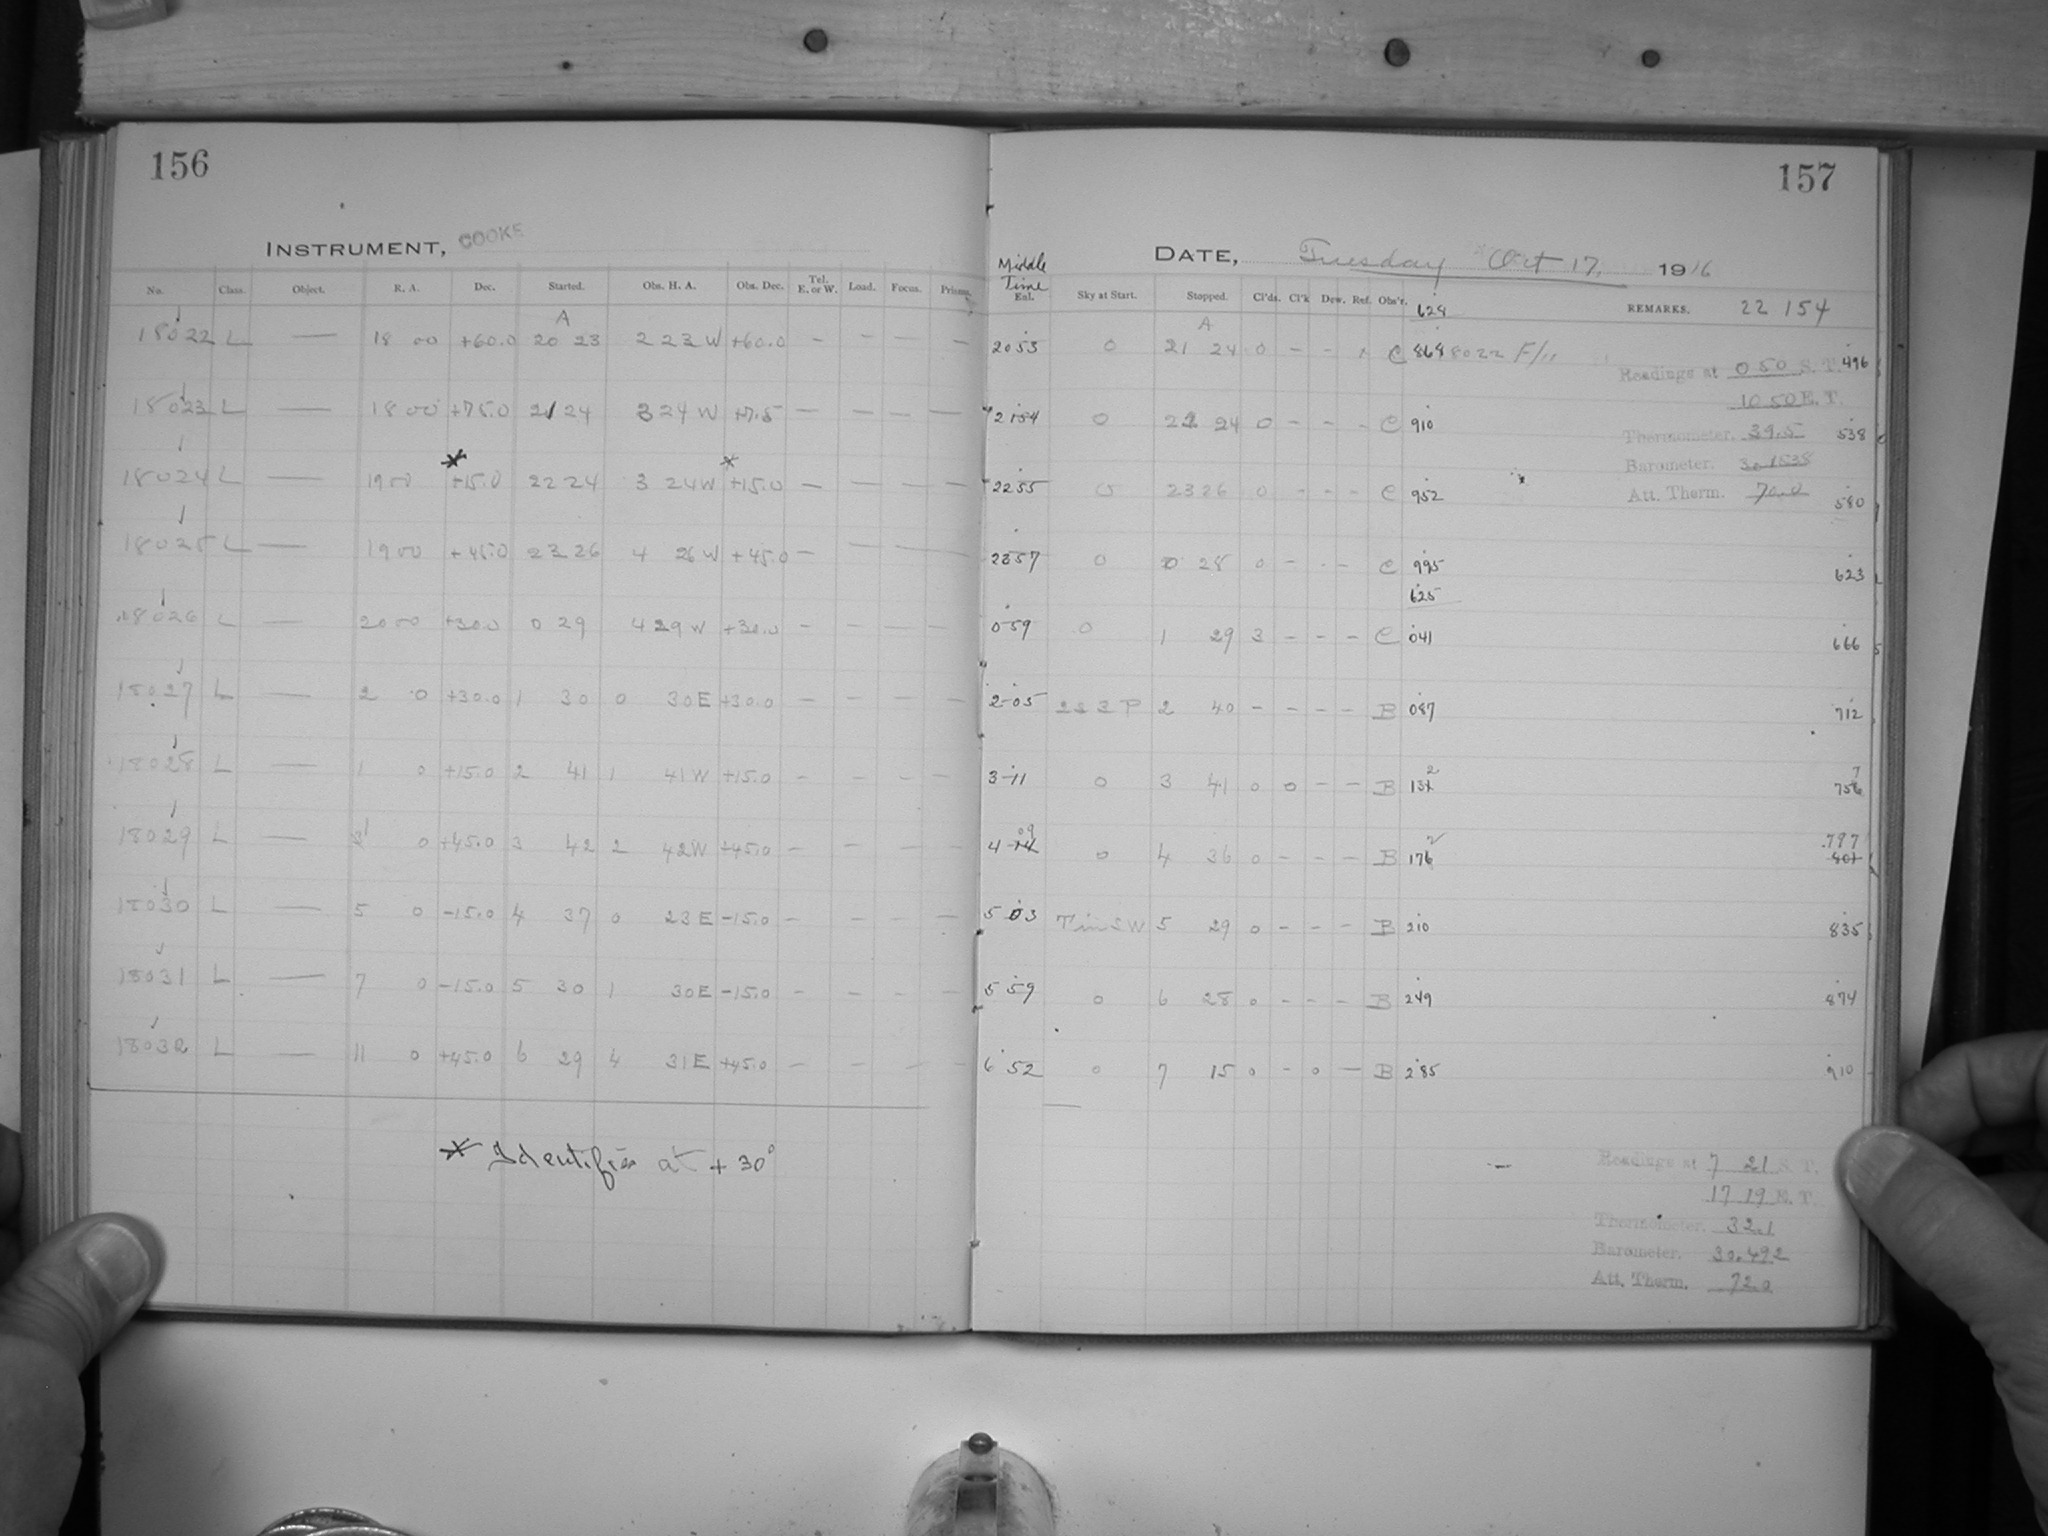 156
157
INSTRUMENT, COOKE
DATE, Tuesday Oct 17, 1916
No. Class. Object. R. A. Dec. Started. Obs. H. A. Obs. Dec. Tel. E. or W. Load. Focus. Prisms.
Middle Time
Enl. Sky at Start. Stopped. Cl'ds. Cl'k Dew. Ref. Obs'r. REMARKS. 22 154
628
A A
18022 L — 18 00 +60.0 20 23 2 23 W +60.0 – – – – 20 53 0 21 24 0 – – C 868 8022 F/11 496
Readings at 0 50 S. T.
10 50 E. T.
18023 L — 18 00 +75.0 21 24 3 24 W +7.5 – – – – 21 54 0 22 24 0 – – – C 910 538
Thermometer. 39.5
Barometer.
Att. Therm. 70.0
18024 L — 19 00 * +15.0 22 24 3 24 W * +15.0 – – – – 22 55 0 23 26 0 – – – C 952 580
18025 L — 19 00 +45.0 23 26 4 26 W +45.0 – – – – 23 57 0 0 28 0 – – – C 995 623
625
18026 L — 20 00 +30.0 0 29 4 29 W +30.0 – – – – 0 59 0 1 29 3 – – – C 041 666
18027 L — 2 0 +30.0 1 30 0 30 E +30.0 – – – – 2 05 2 40 – – – – B 087 712
18028 L — 1 0 +15.0 2 41 1 41 W +15.0 – – – – 3 11 0 3 41 0 0 – – B 132 757
18029 L — 1 0 +45.0 3 42 2 42 W +45.0 – – – – 4 09 0 4 36 0 – – – B 176 797
18030 L — 5 0 –15.0 4 37 0 23 E –15.0 – – – – 5 03 5 29 0 – – – B 210 835
18031 L — 7 0 –15.0 5 30 1 30 E –15.0 – – – – 5 59 0 6 28 0 – – – B 249 874
18032 L — 11 0 +45.0 6 29 4 31 E +45.0 – – – – 6 52 0 7 15 0 – 0 – B 285 910
* Identifies at +30°
Readings at 7 21 S. T.
17 19 E. T.
Thermometer. 32.1
Barometer. 30.492
Att. Therm. 72.0